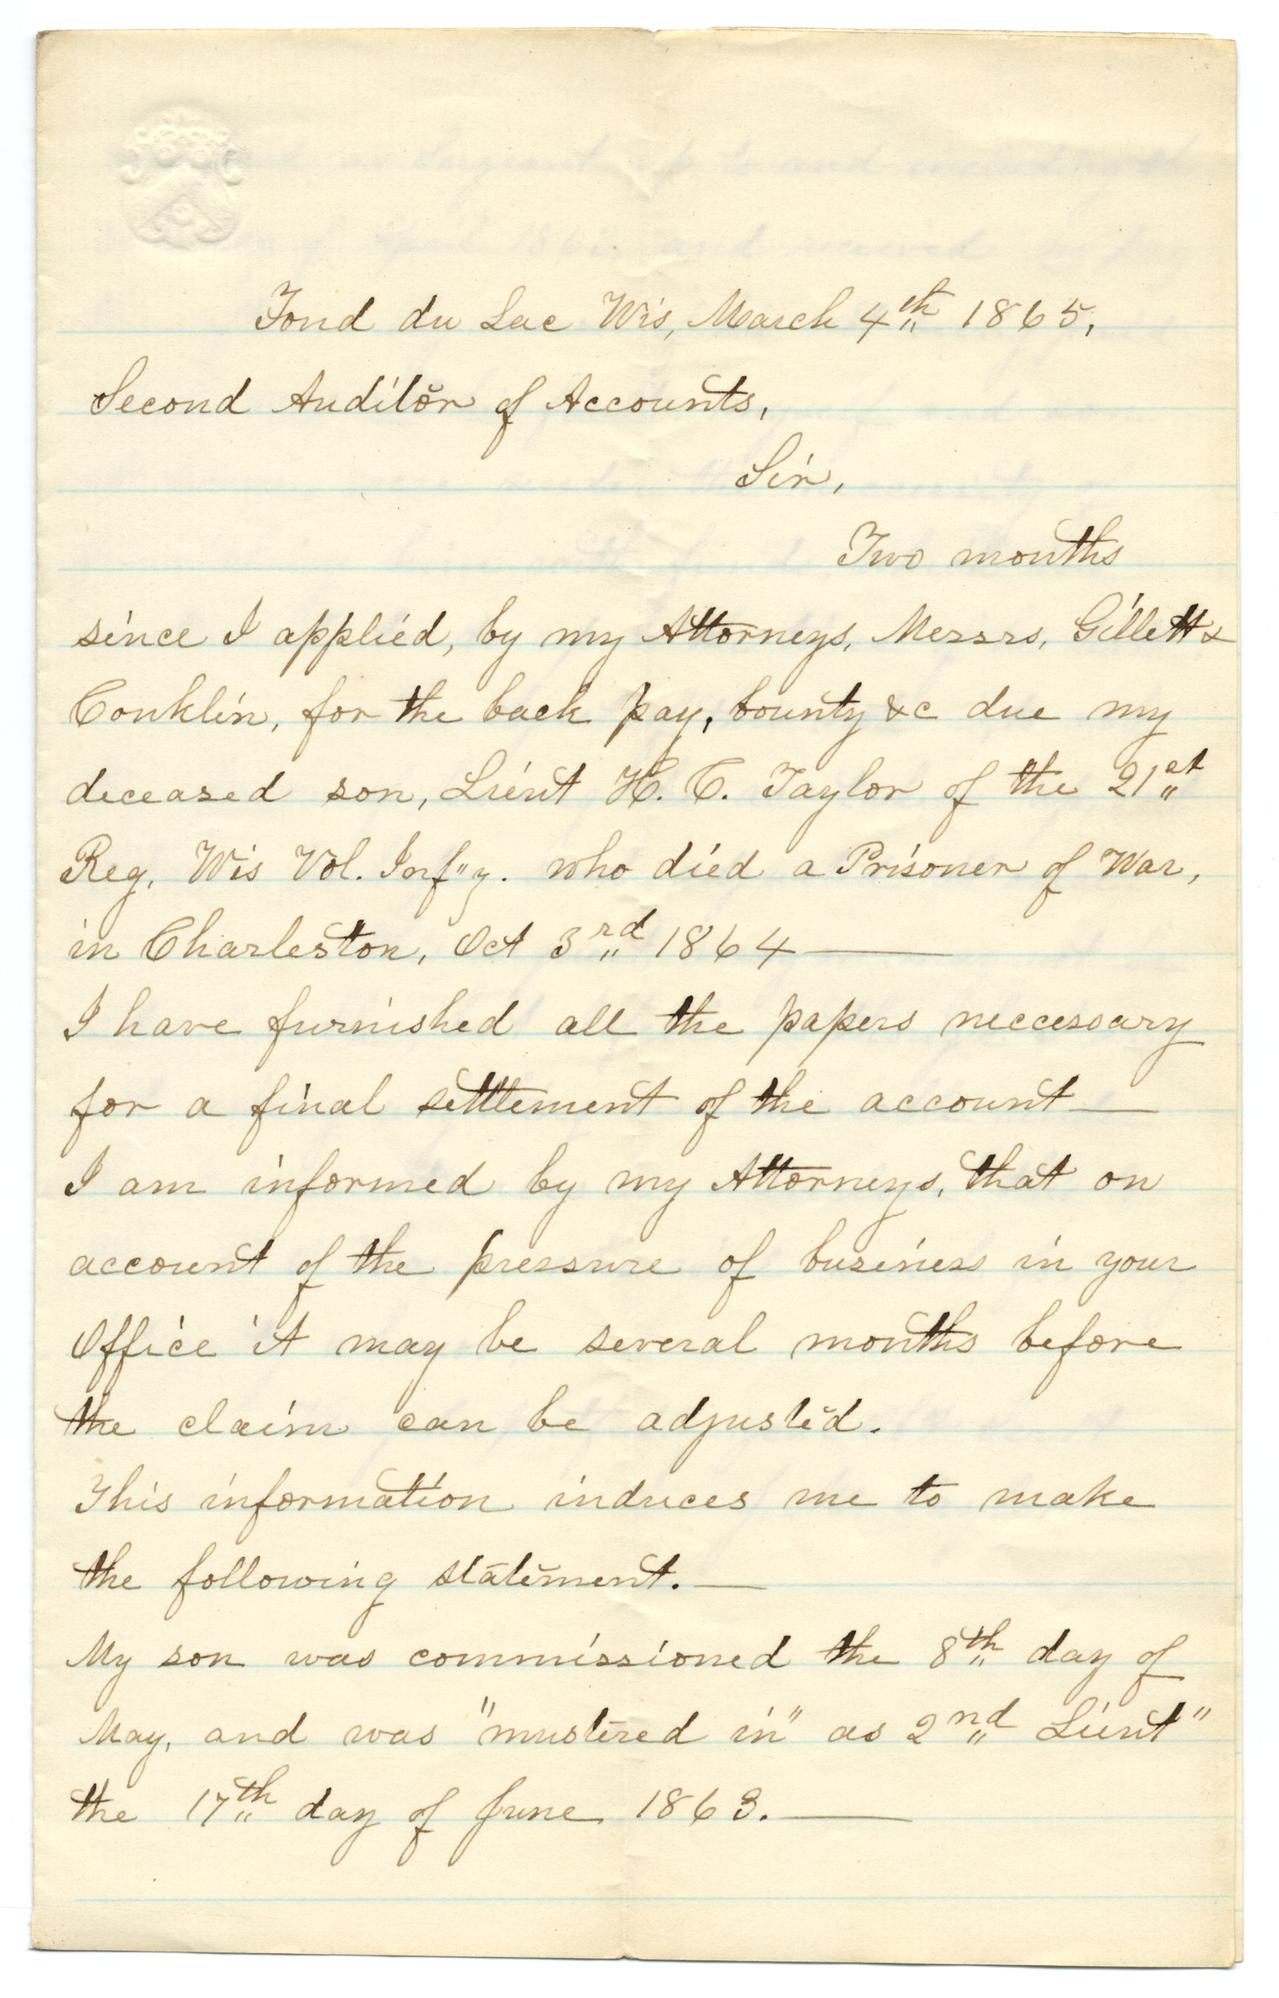 Fond du Lac Wis, March 4th 1865,
Second Auditor of Accounts,
Sir,
Two months
since I applied, by my Attorneys, Messrs, Gillett &
Conklin, for the back pay, bounty &c due my
deceased son, Lieut H. C. Taylor of the 21st
Reg. Wis Vol. Inf"y. who died a Prisoner of War,
in Charleston, Oct 3rd 1864 —
I have furnished all the papers neccessary
for a final settlement of the account —
I am informed by my Attorneys, that on
account of the pressure of business in your
Office it may be several months before
the claim can be adjusted.
This information induces me to make
the following statement. —
My son was commissioned the 8th day of
May, and was "mustered in" as 2nd Lieut"
the 17th day of June 1863. —